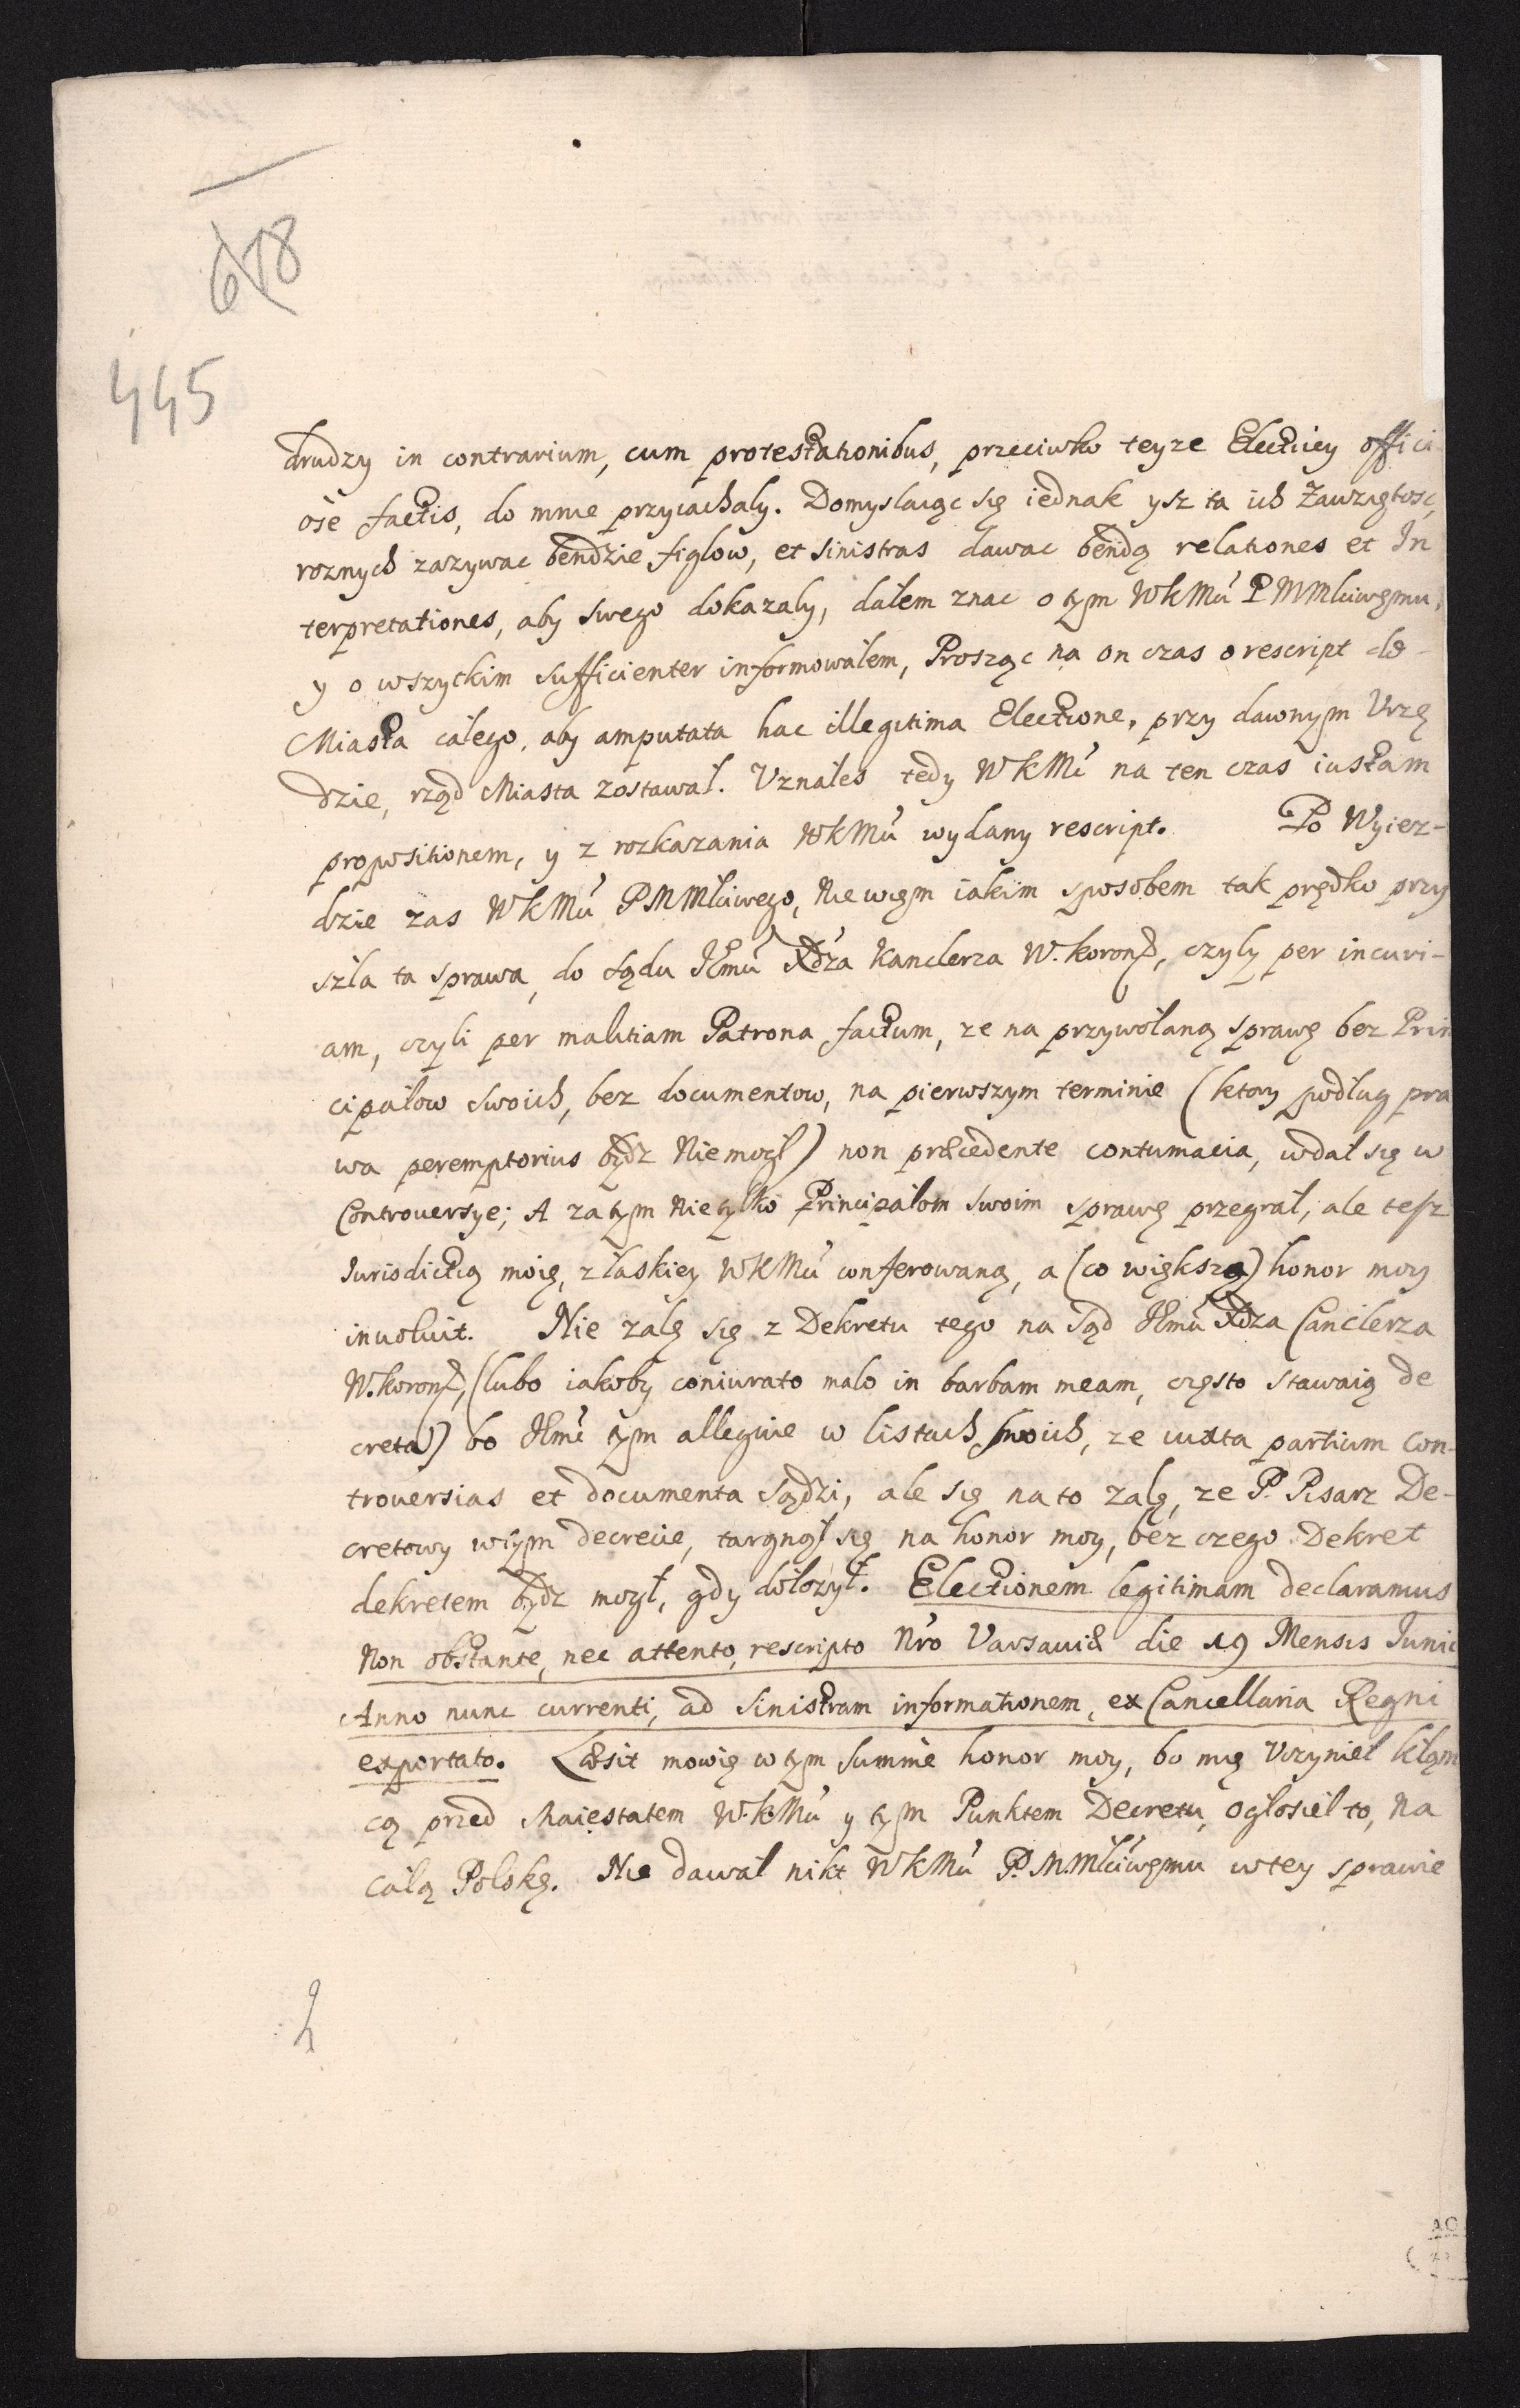 618
445
drudzy in contrarium, cum protestationibus, przeciwko teyze Electiey offici
ose factis, do mnie przyiachaly. Domyslaiąc się iednak ysz ta ich Zawziętosc,
roznych zazywac bendzie figlow, et sinistras dawac bendą relationes et In
terpretationes, aby swego dokazaly, dałem znac o tym WKMći PMMłciwęmu,
y o wszytkim sufficienter informowałem, Prosząc na on czas o rescript do
Miasta całego, aby amputata hac illegitima Electione, przy dawnym Vrzę
dzie, rząd Miasta zostawał. Vznałes tedy WKMć na ten czas iustam
propositionem, y z rozkazania WKMći wydany rescript. Po Wyiez-
dzie zas WKMći PMMłciwego, Nie więm iakim sposobem tak prędko przy
szla ta sprawa, do sądu JEmći Xdza Kanclerza W. koron, czyly per incuri-
am, czyli per malitiam Patrona factum, ze na przywołaną sprawę bez Prin
cipałow swoich, bez documentow, na pierwszym terminie (ktory podług pra
wa peremptorius bydz Niemogł) non præcedente contumacia, wdał się w
Controversye; A zatym Nietylko Principałom swoim sprawę przegrał, ale tesz
Jurisdictią moię, z łaskiey WKMći conferowaną, a (co większa) honor moy
involvit. Nie zalę się z Dekretu tego na Sąd JEmći Xdza Canclerza
W. koron, (lubo iakoby coniurato malo in barbam meam, często stawaią de
creta) bo JEmć tym alleguie w listach swoich, ze iuxta partium con-
troversias et documenta sądzi, ale się na to zalę, ze P. Pisarz De-
cretowy w tym decrecie, targnął się na honor moy, bez czego Dekret
dekretem bydz mogł, gdy dołozył. Electionem legitimam declaramus
Non obstante, nec attento, rescripto Nro Varsaviæ die 19 Mensis Junii
Anno nunc currenti, ad sinistram informationem, ex Cancellaria Regni
exportato. Læsit mowię w tym summe honor moy, bo mię Vczynieł kłąm
cą przed Maiestatem W.KMći y tym Punktem Decretu, ogłosieł to, na
całą Polskę. Nie dawał nikt WKMći P.M.Młciwęmu w tey sprawie
2